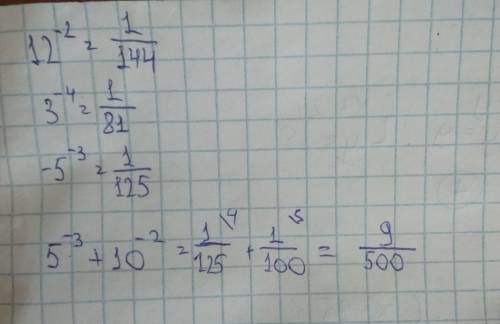 12⁻² = 1/144
3⁻⁴ = 1/81
-5⁻³ = 1/125
5⁻³ + 10⁻² = 1\4/125 + 1\5/100 = 9/500